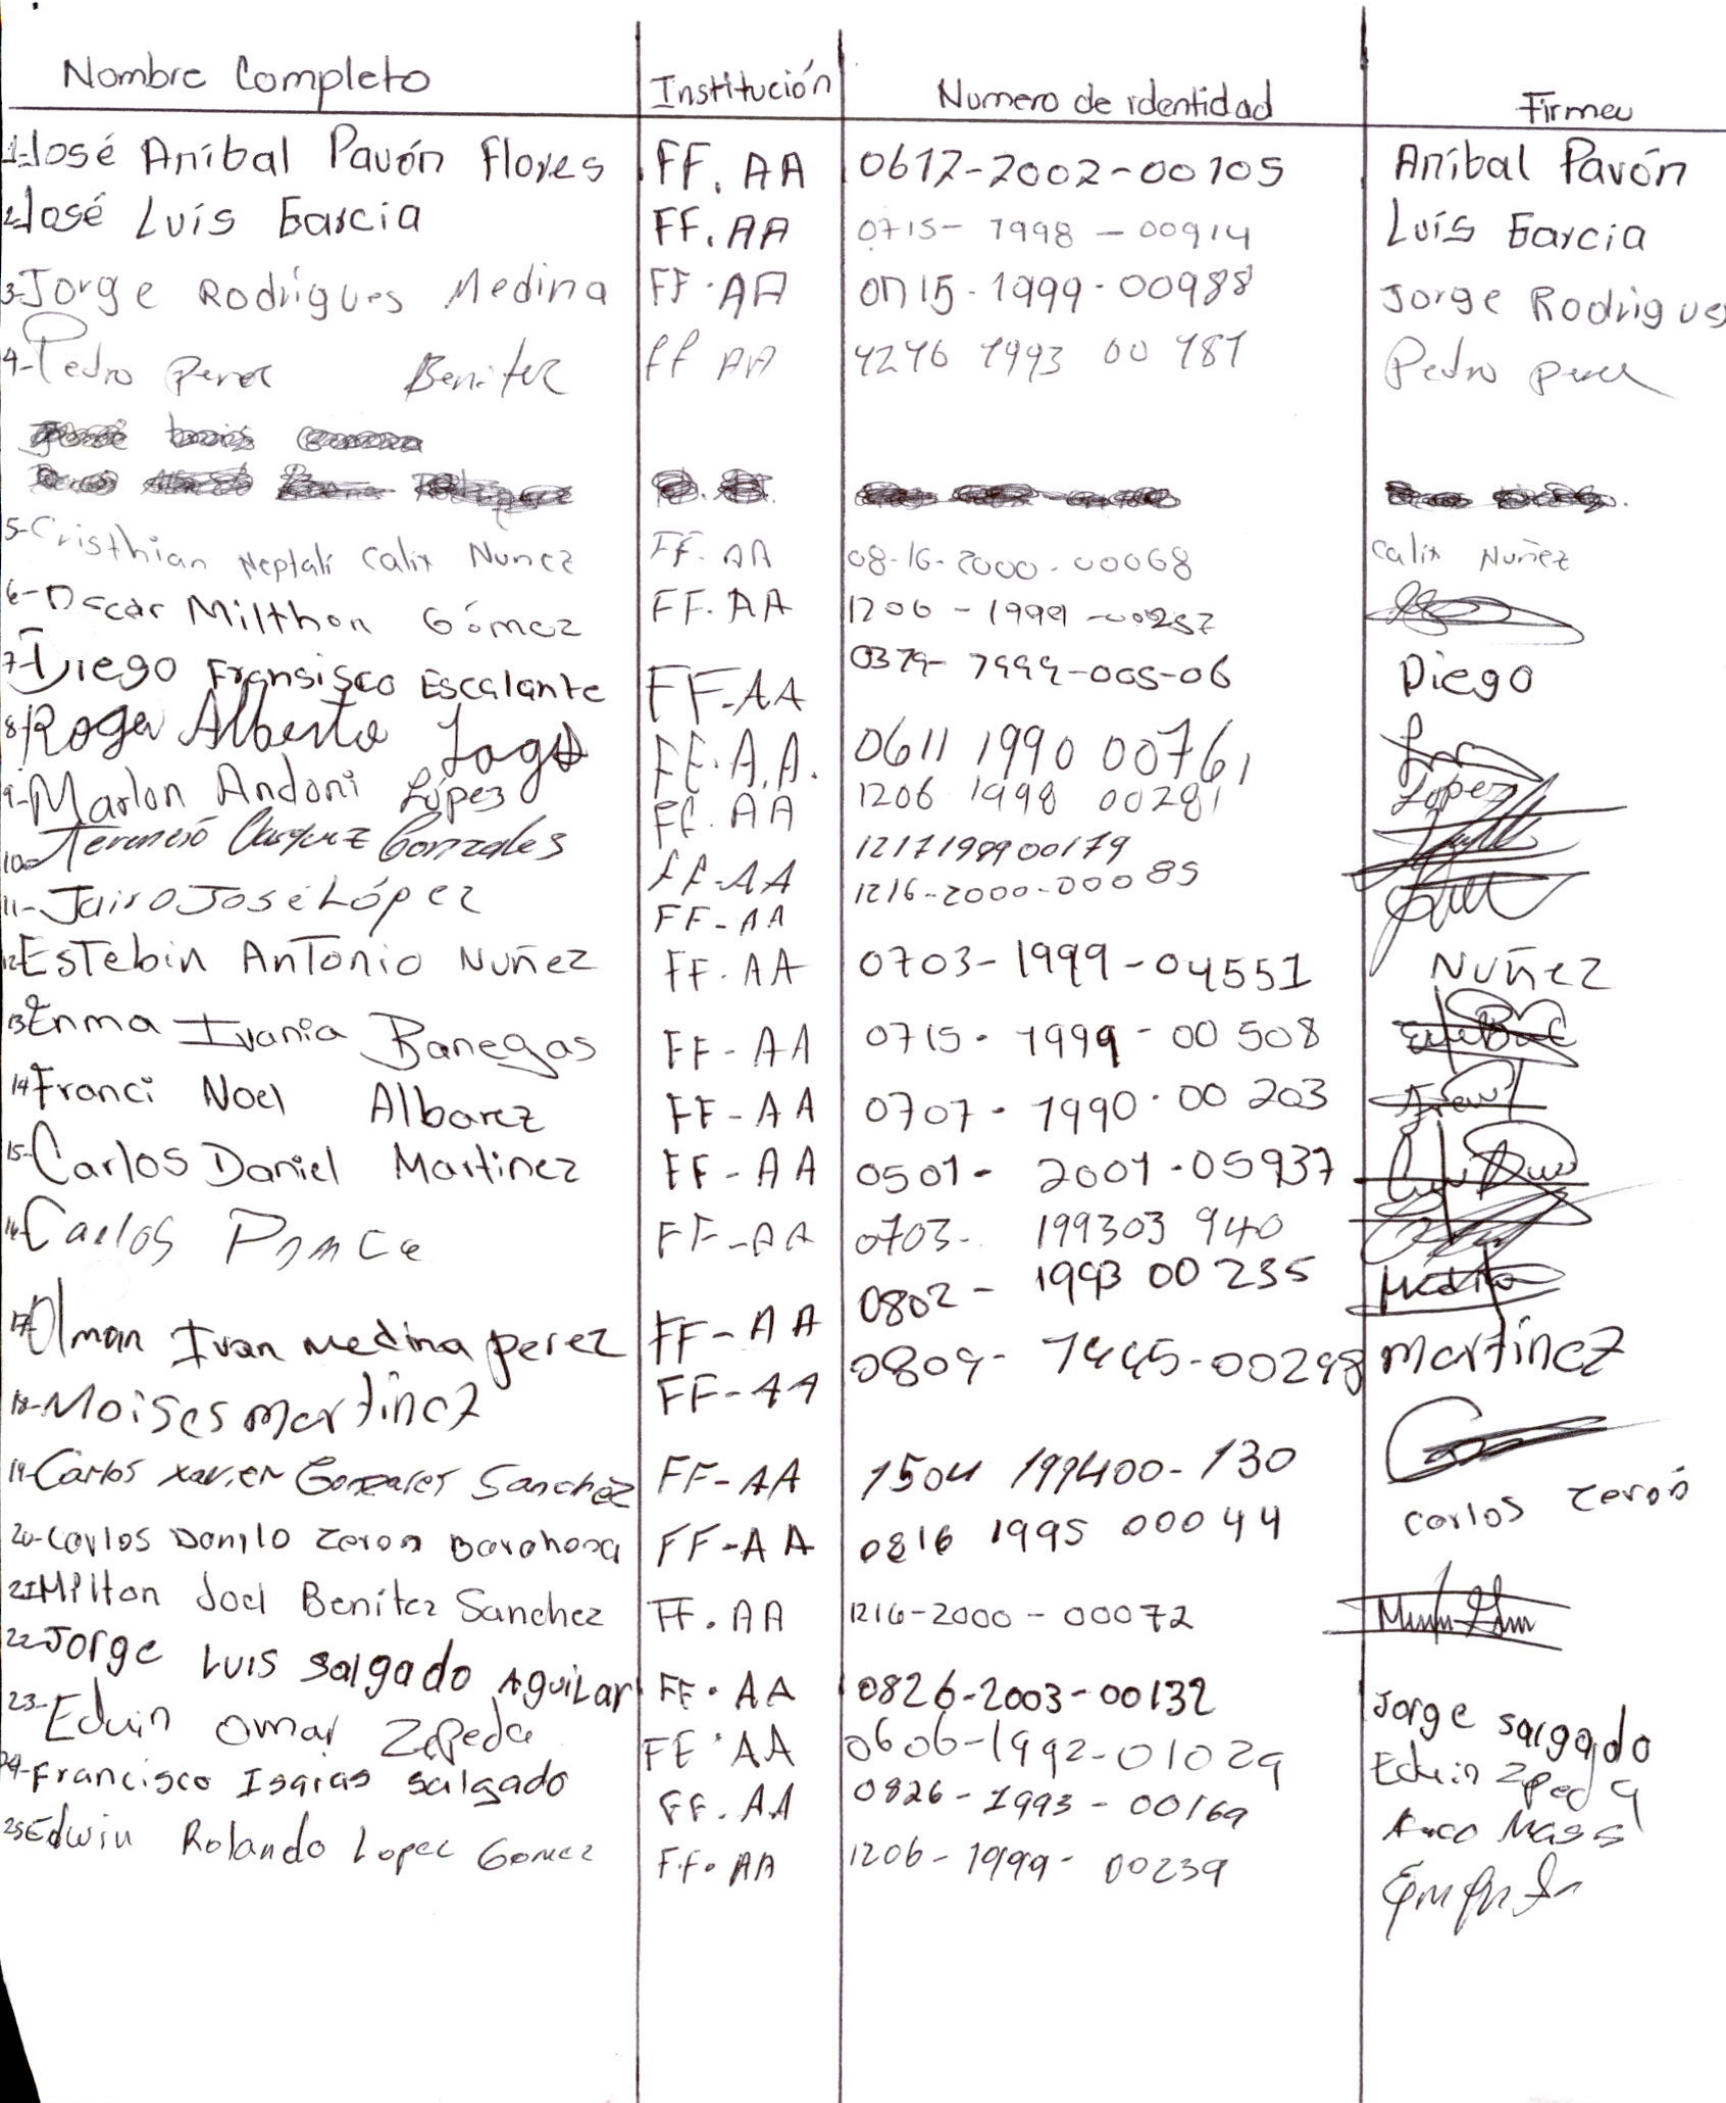 Nombre Completo Institución Numero de identidad Firma
1-José Aníbal Pavón Flores FF. AA 0612-2002-00105 Aníbal Pavón
2-José Luís Garcia FF. AA 0715- 1998 - 00914 Luís Garcia
3-Jorge Rodrígues Medina FF. AA 0715-1999-00988 Jorge Rodrigues
4-Pedro Perez Benitez FF AA 1993 00 181 Pedro perez
5-Cristhian Neptalí Calix Nuñez FF. AA 08-16-2000-00068 Calix Nuñez
6-Oscar Milthon Gómez FF. AA 1206 - 1999 -00257
7-Diego Fransisco Escalante FF-AA Diego
8-Roger Alberto FF. A.A. 0611 1990 00761
9-Marlon Andoni López FF. AA 1206 1998 00281 Lopez
10- Gonzales FF-AA 1217199900179
11-Jairo José López FF-AA 1216-2000-00085
12-Estebin Antonio Nuñez FF. AA 0703-1999-04551 Nuñez
13-Enma Ivania Banegas FF-AA 0715-1999-00 508
14-Franci Noel Albarez FF-AA 0707-1990-00 203
15-Carlos Daniel Martinez FF-AA 0501- 2001-05937
16-Carlos Ponce FF-AA 0703- 199303 940
17-Olman Ivan Medina perez FF-AA 0802- 1993 00 235 Medina
18-Moises martinez FF-AA martinez
19-Carlos Xavier Gonzales Sanchez FF-AA 1504 199400-130
20-Carlos Danilo Zeron Barahona FF-AA 0816 1995 00044 Carlos Zerón
21-Milton Joel Benítez Sanchez FF. AA 1216-2000-00072
22-Jorge Luis salgado Aguilar FF. AA 0826-2003-00132 Jorge salgado
23-Eduin Omar Zepeda FF. AA 0606-1992-01029 Eduin Zepeda
24-Francisco Isaias salgado FF. AA 0826-1993-00169
25-Edwin Rolando Lopez Gomez FF. AA 1206-1999-00239